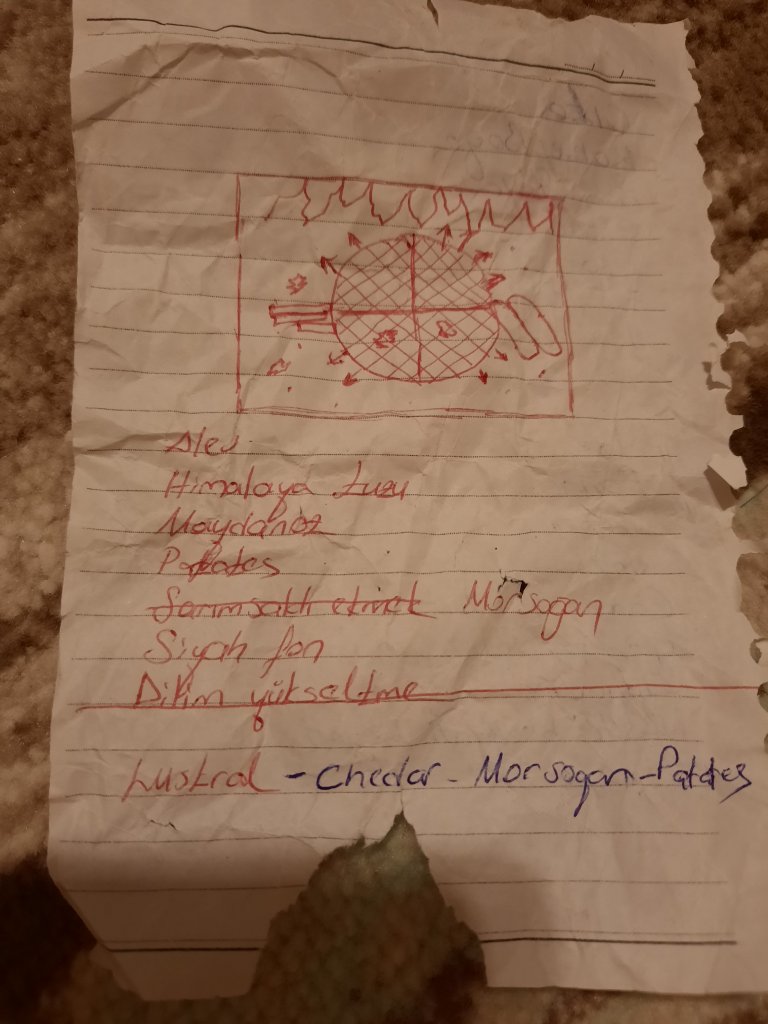 Alev
Himalaya tuzu
Maydanoz
Patates
Sarımsaklı ekmek Morsogan
Siyah fon
Dilim yükseltme
Lustral - Chedar - Morsogan - Patates